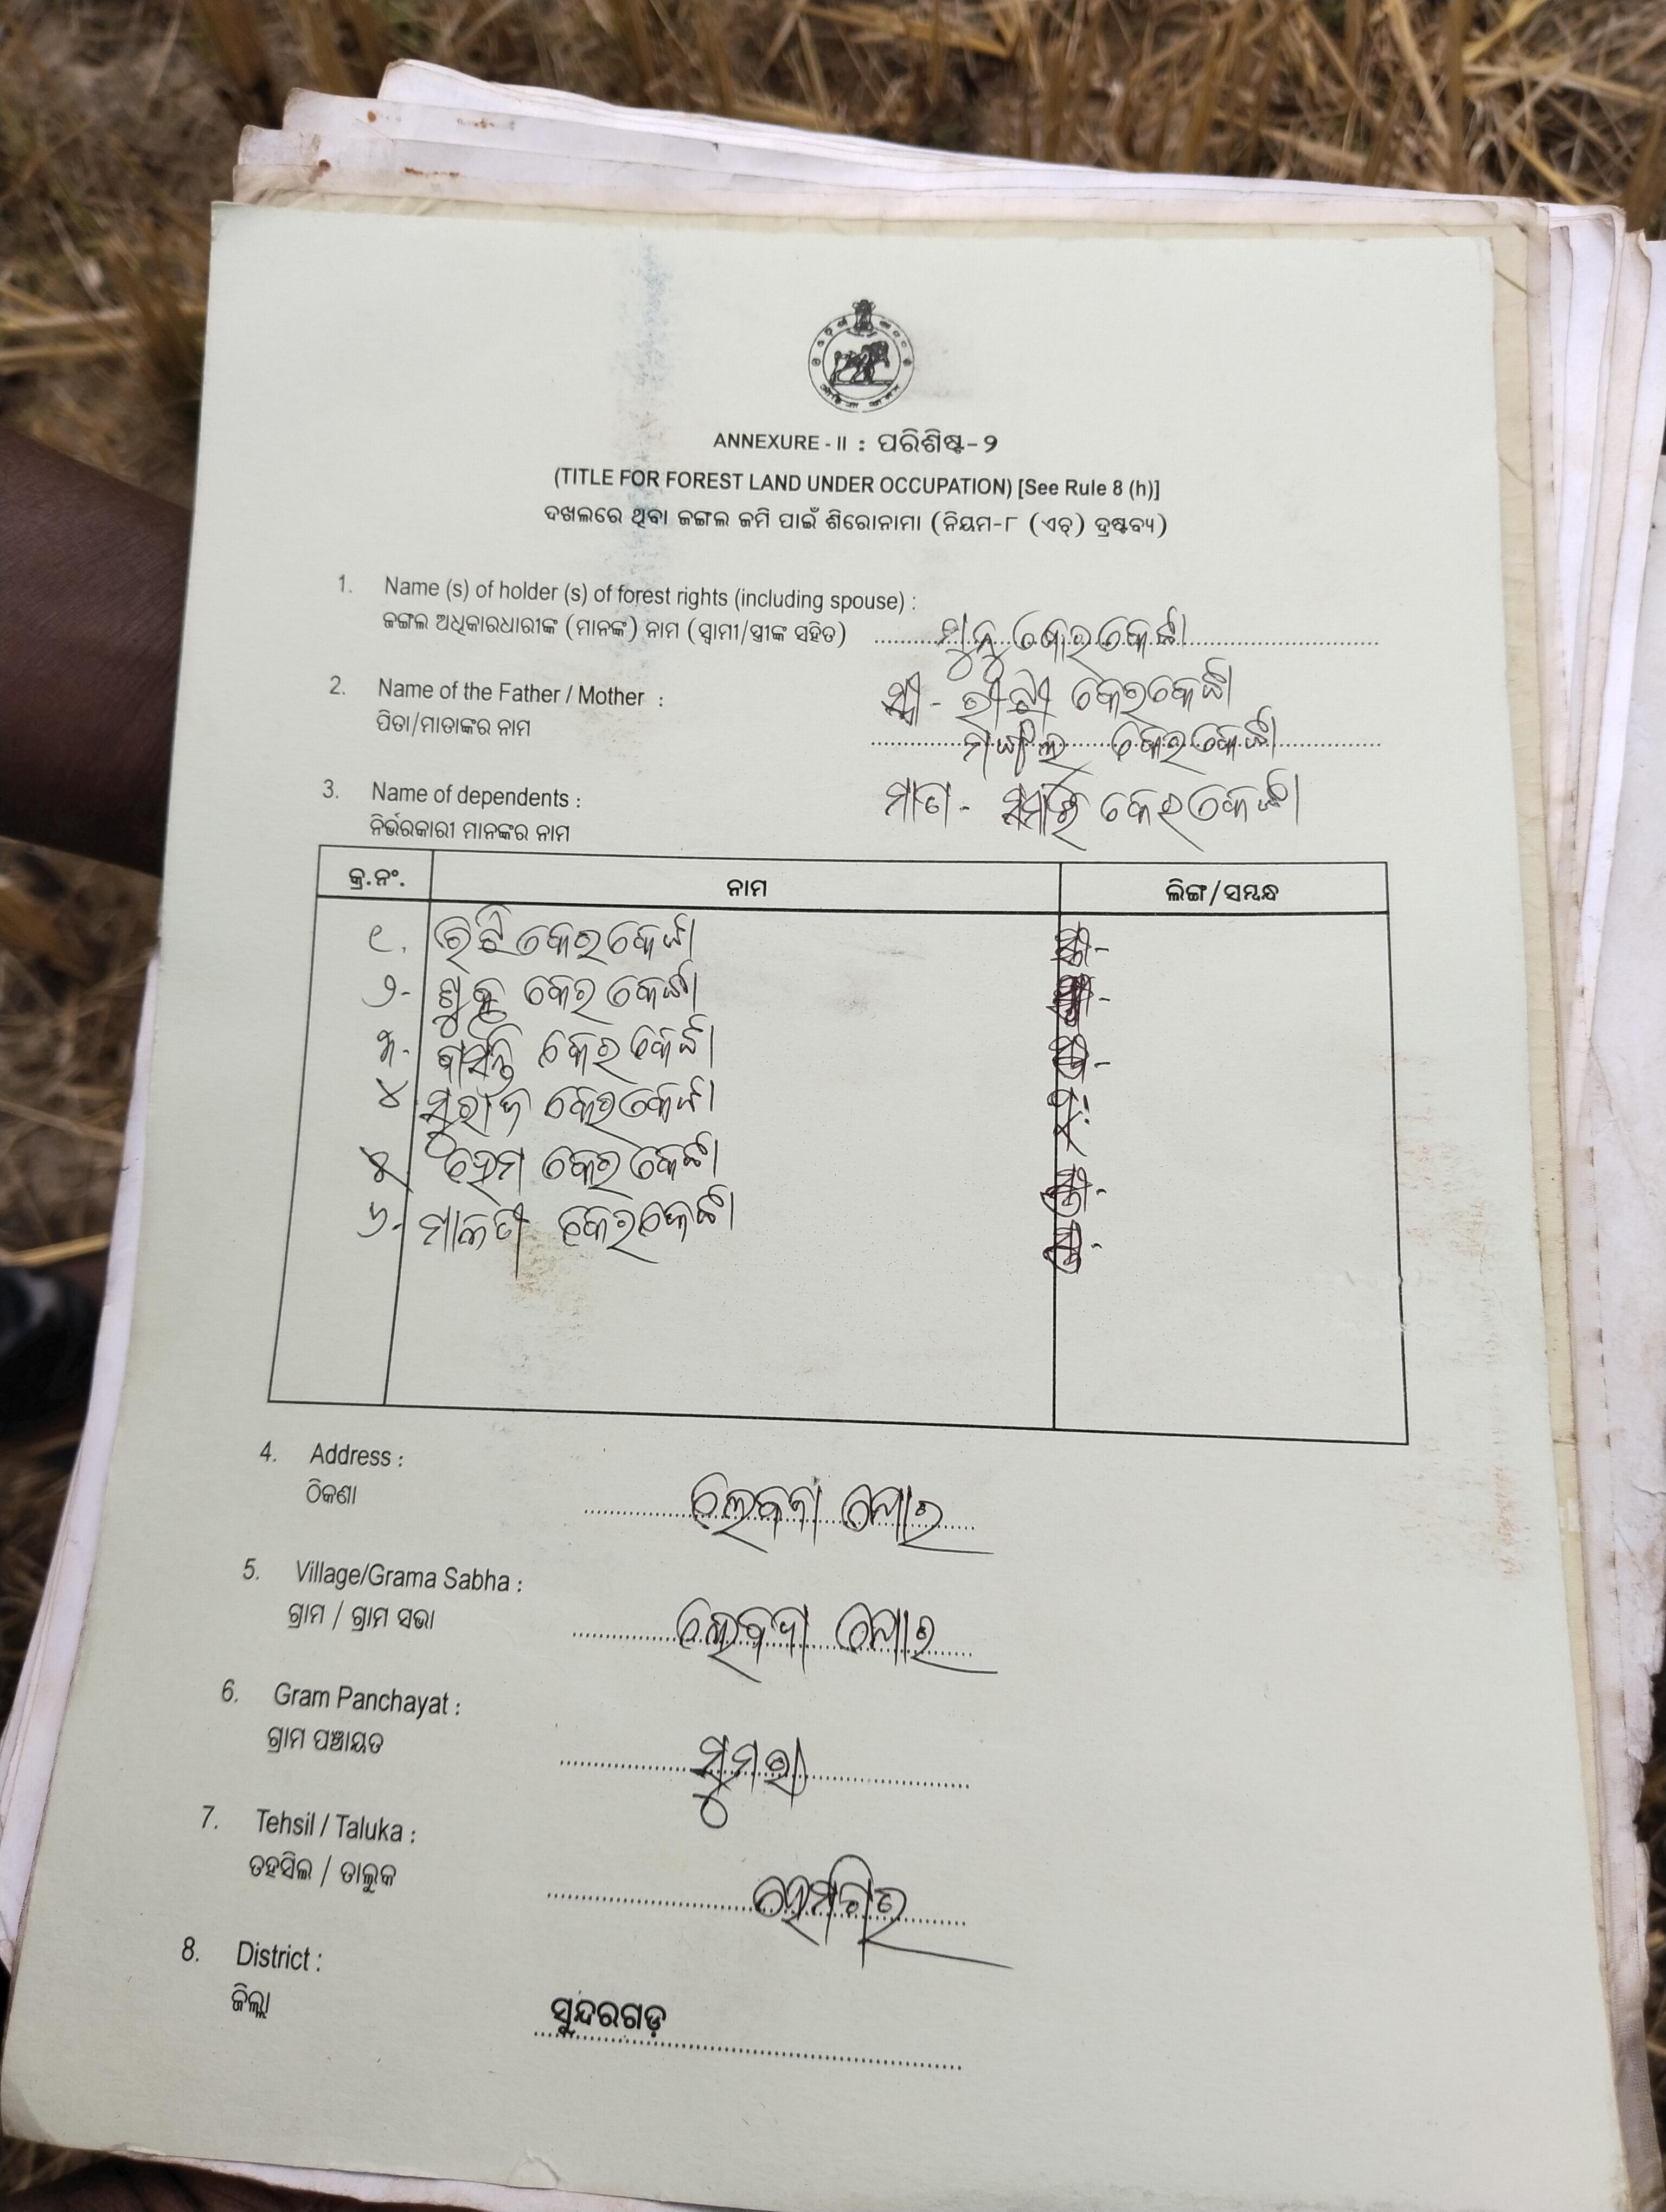 ANNEXURE - II : ପରିଶିଷ୍ଟ-୨
(TITLE FOR FOREST LAND UNDER OCCUPATION) [See Rule 8 (h)]
ଦଖଲରେ ଥିବା ଜଙ୍ଗଲ ଜମି ପାଇଁ ଶିରୋନାମା (ନିୟମ-୮ (ଏଚ୍) ଦ୍ରଷ୍ଟବ୍ୟ)
1. Name (s) of holder (s) of forest rights (including spouse) :
ଜଙ୍ଗଲ ଅଧିକାରଧାରୀଙ୍କ (ମାନଙ୍କ) ନାମ (ସ୍ୱାମୀ/ସ୍ତ୍ରୀଙ୍କ ସହିତ) କେରକେଟ୍ଟା
2. Name of the Father / Mother : ସ୍ତ୍ରୀ - କେରକେଟ୍ଟା
ପିତା/ମାତାଙ୍କର ନାମ କେରକେଟ୍ଟା
3. Name of dependents : ମାତା - କେରକେଟ୍ଟା
ନିର୍ଭରକାରୀ ମାନଙ୍କର ନାମ
କ୍ର.ନଂ. ନାମ ଲିଙ୍ଗ/ସମ୍ବନ୍ଧ
୧. କେରକେଟ୍ଟା ସ୍ତ୍ରୀ-
୨- କେରକେଟ୍ଟା
୩- ବାସନ୍ତି କେରକେଟ୍ଟା
୪ ସୁରାଜ କେରକେଟ୍ଟା ପୁଃ
୫ ହେମ କେରକେଟ୍ଟା ସ୍ତ୍ରୀ-
୬- ମାଳତୀ କେରକେଟ୍ଟା ସ୍ତ୍ରୀ-
4. Address :
ଠିକଣା
5. Village/Grama Sabha :
ଗ୍ରାମ / ଗ୍ରାମ ସଭା
6. Gram Panchayat :
ଗ୍ରାମ ପଞ୍ଚାୟତ ସୁମରା
7. Tehsil / Taluka :
ତହସିଲ / ତାଲୁକ ହେମଗିର
8. District :
ଜିଲ୍ଲା ସୁନ୍ଦରଗଡ଼